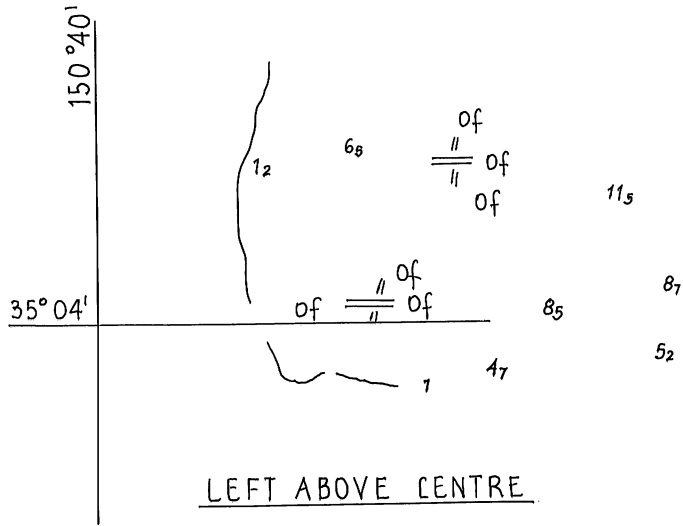 150°40'
Of
6₈
1₂
Of
Of
11₅
Of
8₇
Of
Of
8₅
35°04'
5₂
4₇
1
LEFT ABOVE CENTRE